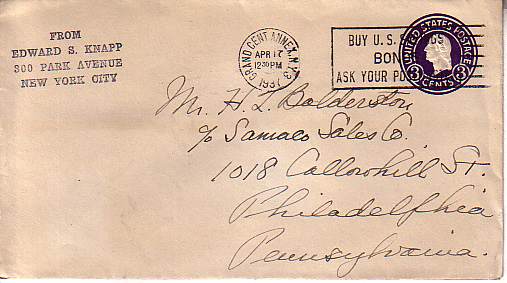 FROM
EDWARD S. KNAPP
300 PARK AVENUE
NEW YORK CITY
GRAND CENT. ANNEX. N.Y. 3
APR 17
1230 PM
1937
BUY U.S. S GS
BON
ASK YOUR PO
UNITED STATES POSTAGE
3 CENTS 3
Mr. H. L. Balderston
c/o Samaco Sales Co.
1018 Callowhill St.
Philadelphia
Pennsylvania.